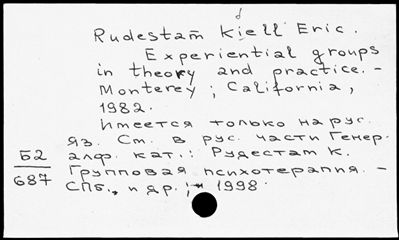 Rudestam Kjell Eric.
Experiential groups
in theory and practice. -
Monterey ; California,
1982.
Имеется только на рус.
яз. См. в рус. части Генер.
алф. кат.: Рудестам К.
Групповая психотерапия. -
СПб., и др.; 1998.
Б2
687